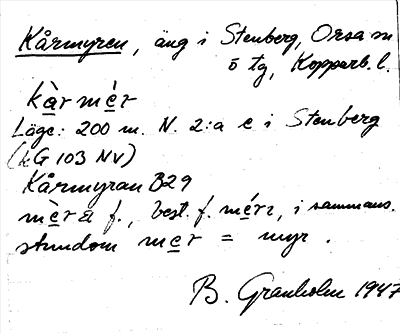 Kårmyren, äng i Stenberg, Orsa sn
ö tg, Kopparb. l.
kàr mér
Läge: 200 m. N. 2:a e i Stenberg
(kG 103 NV)
Kårmyran B29
mèra f., best. f. mérı, i sammans.
stundom mer = myr.
B. Granholm 1947